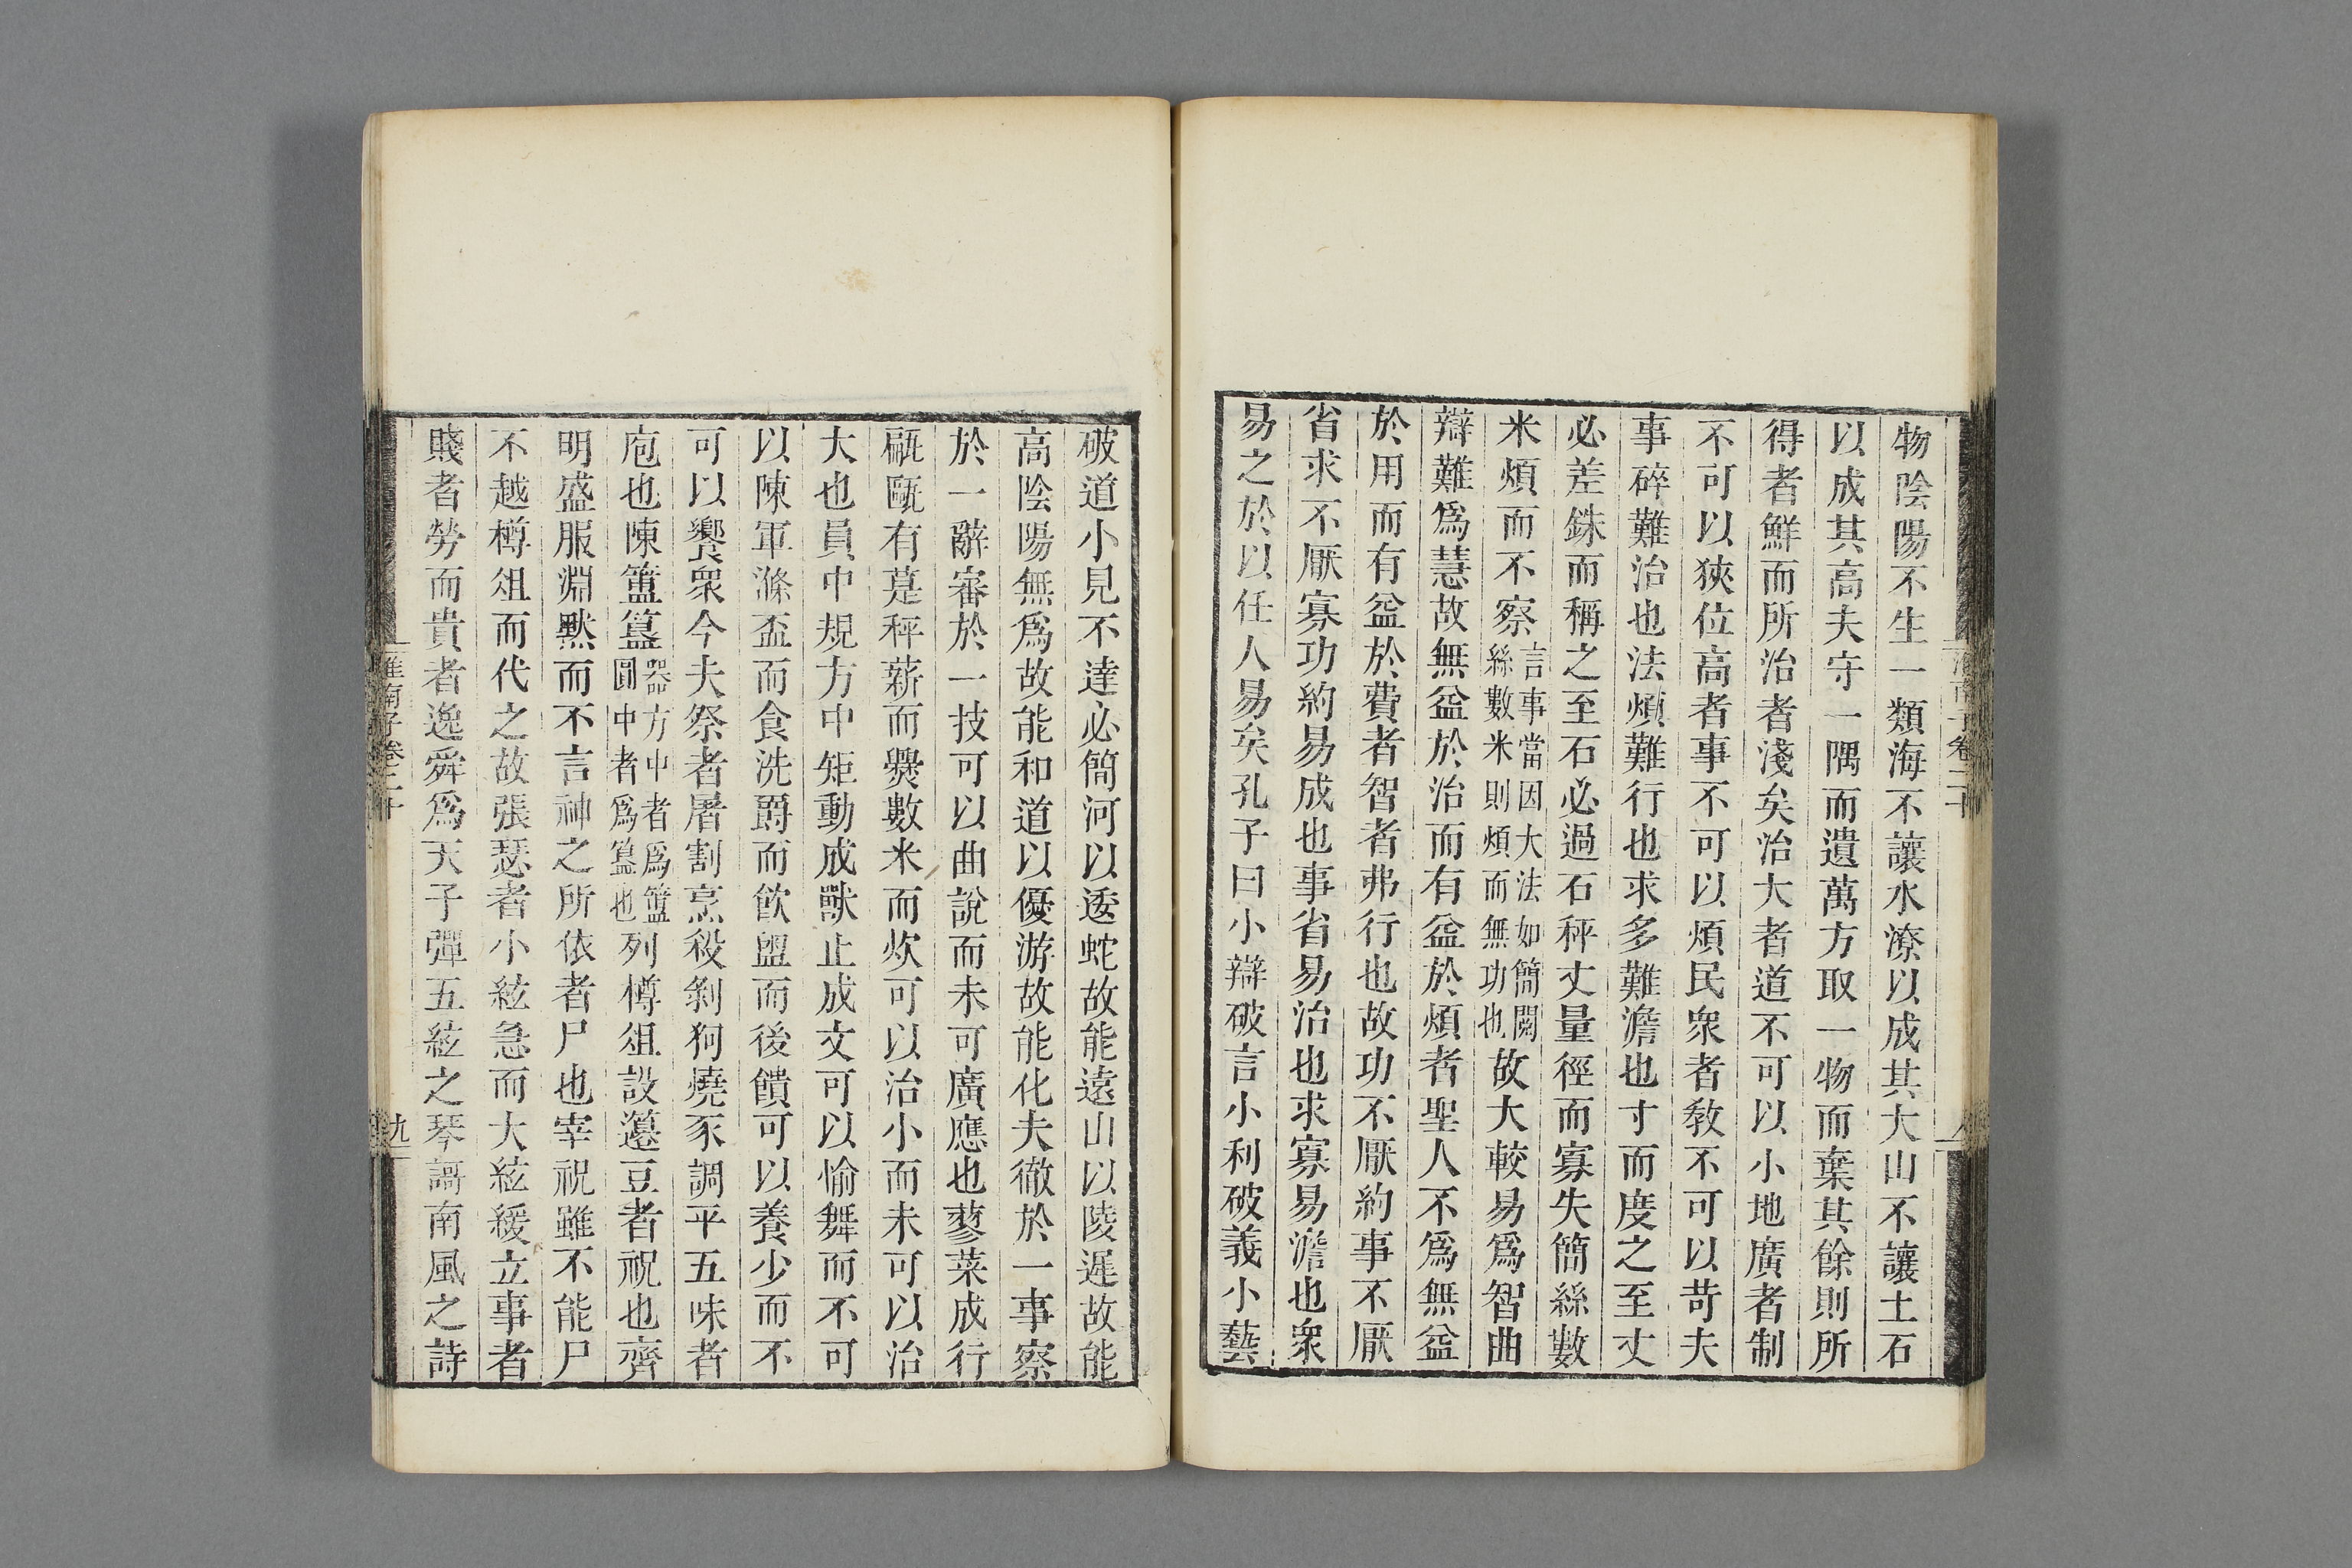 物陰陽不生一類海不讓水潦以成其大山不讓土石
以成其高夫守一隅而遺萬方取一物而棄其餘則所
得者鮮而所治者淺矣治大者道不可以小地廣者制
不可以狹位高者事不可以煩民衆者敎不可以苛夫
事碎難治也法煩難行也求多難澹也寸而度之至丈
必差銖而稱之至石必過石秤丈量徑而寡失簡絲數
米煩而不察言事當因大法如簡閱絲數米則煩而無功也故大較易爲智曲
辯難爲慧故無益於治而有益於煩者聖人不爲無益
於用而有益於費者智者弗行也故功不厭約事不厭
省求不厭寡功約易成也事省易治也求寡易澹也衆
易之於以任人易矣孔子曰小辯破言小利破義小藝
破道小見不達必簡河以逶蛇故能遠山以陵遲故能
高陰陽無爲故能和道以優游故能化夫徹於一事察
於一辭審於一技可以曲說而未可廣應也蓼菜成行
甂甌有莛秤薪而爨數米而炊可以治小而未可以治
大也員中規方中矩動成獸止成文可以愉舞而不可
以陳軍滌盃而食洗爵而飲盥而後饋可以養少而不
可以饗衆今夫祭者屠割烹殺剝狗燒豕調平五味者
庖也陳簠簋器方中者爲簠圓中者爲簋也列樽俎設籩豆者祝也齊
明盛服淵默而不言神之所依者尸也宰祝雖不能尸
不越樽俎而代之故張瑟者小絃急而大絃緩立事者
賤者勞而貴者逸舜爲天子彈五絃之琴謌南風之詩
淮南子卷二十
九